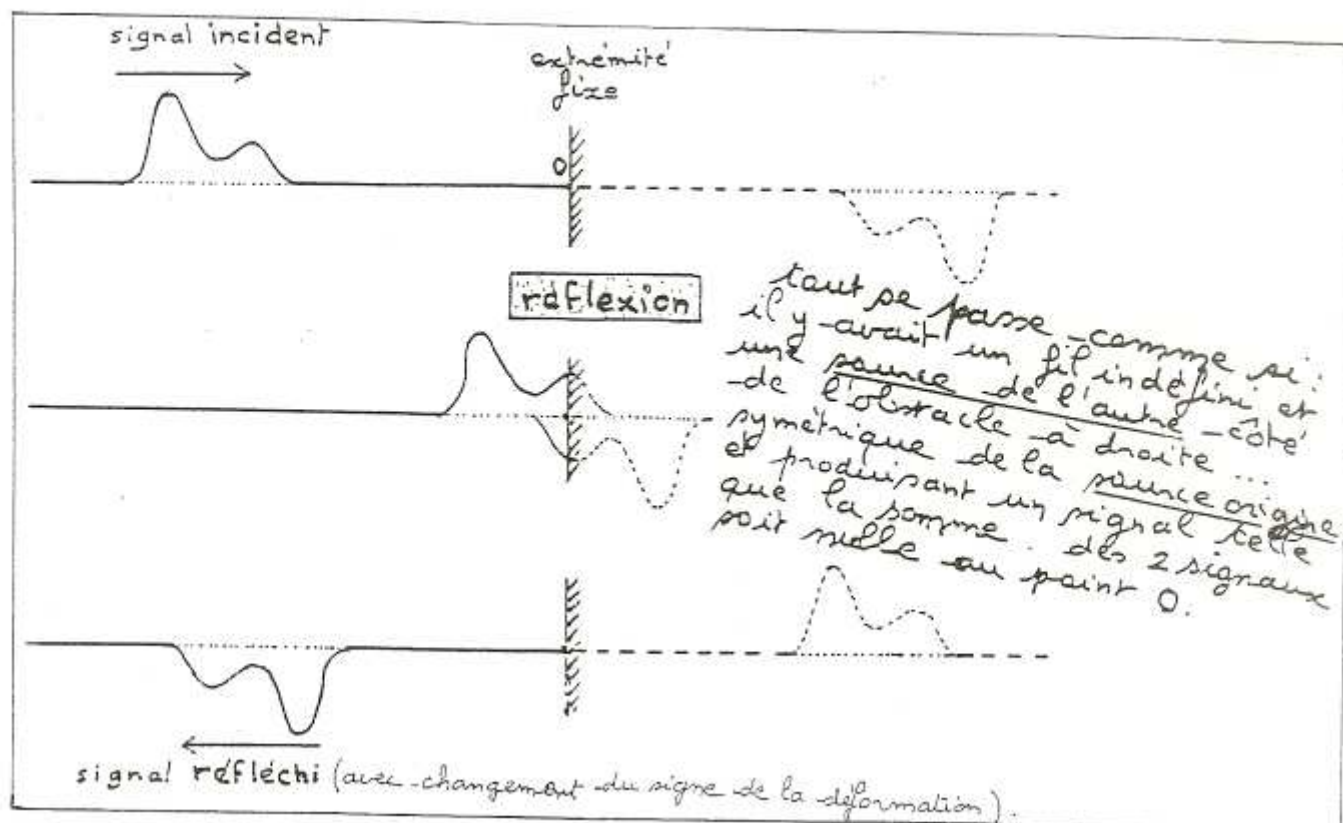 signal incident
extrémité
fixe
O
réflexion
tout se passe comme si :
il y avait un fil indéfini et
une source de l'autre côté
de l'obstacle à droite ...
symétrique de la source origine
et produisant un signal telle
que la somme des 2 signaux
soit nulle au point O.
signal réfléchi (avec changement du signe de la déformation).